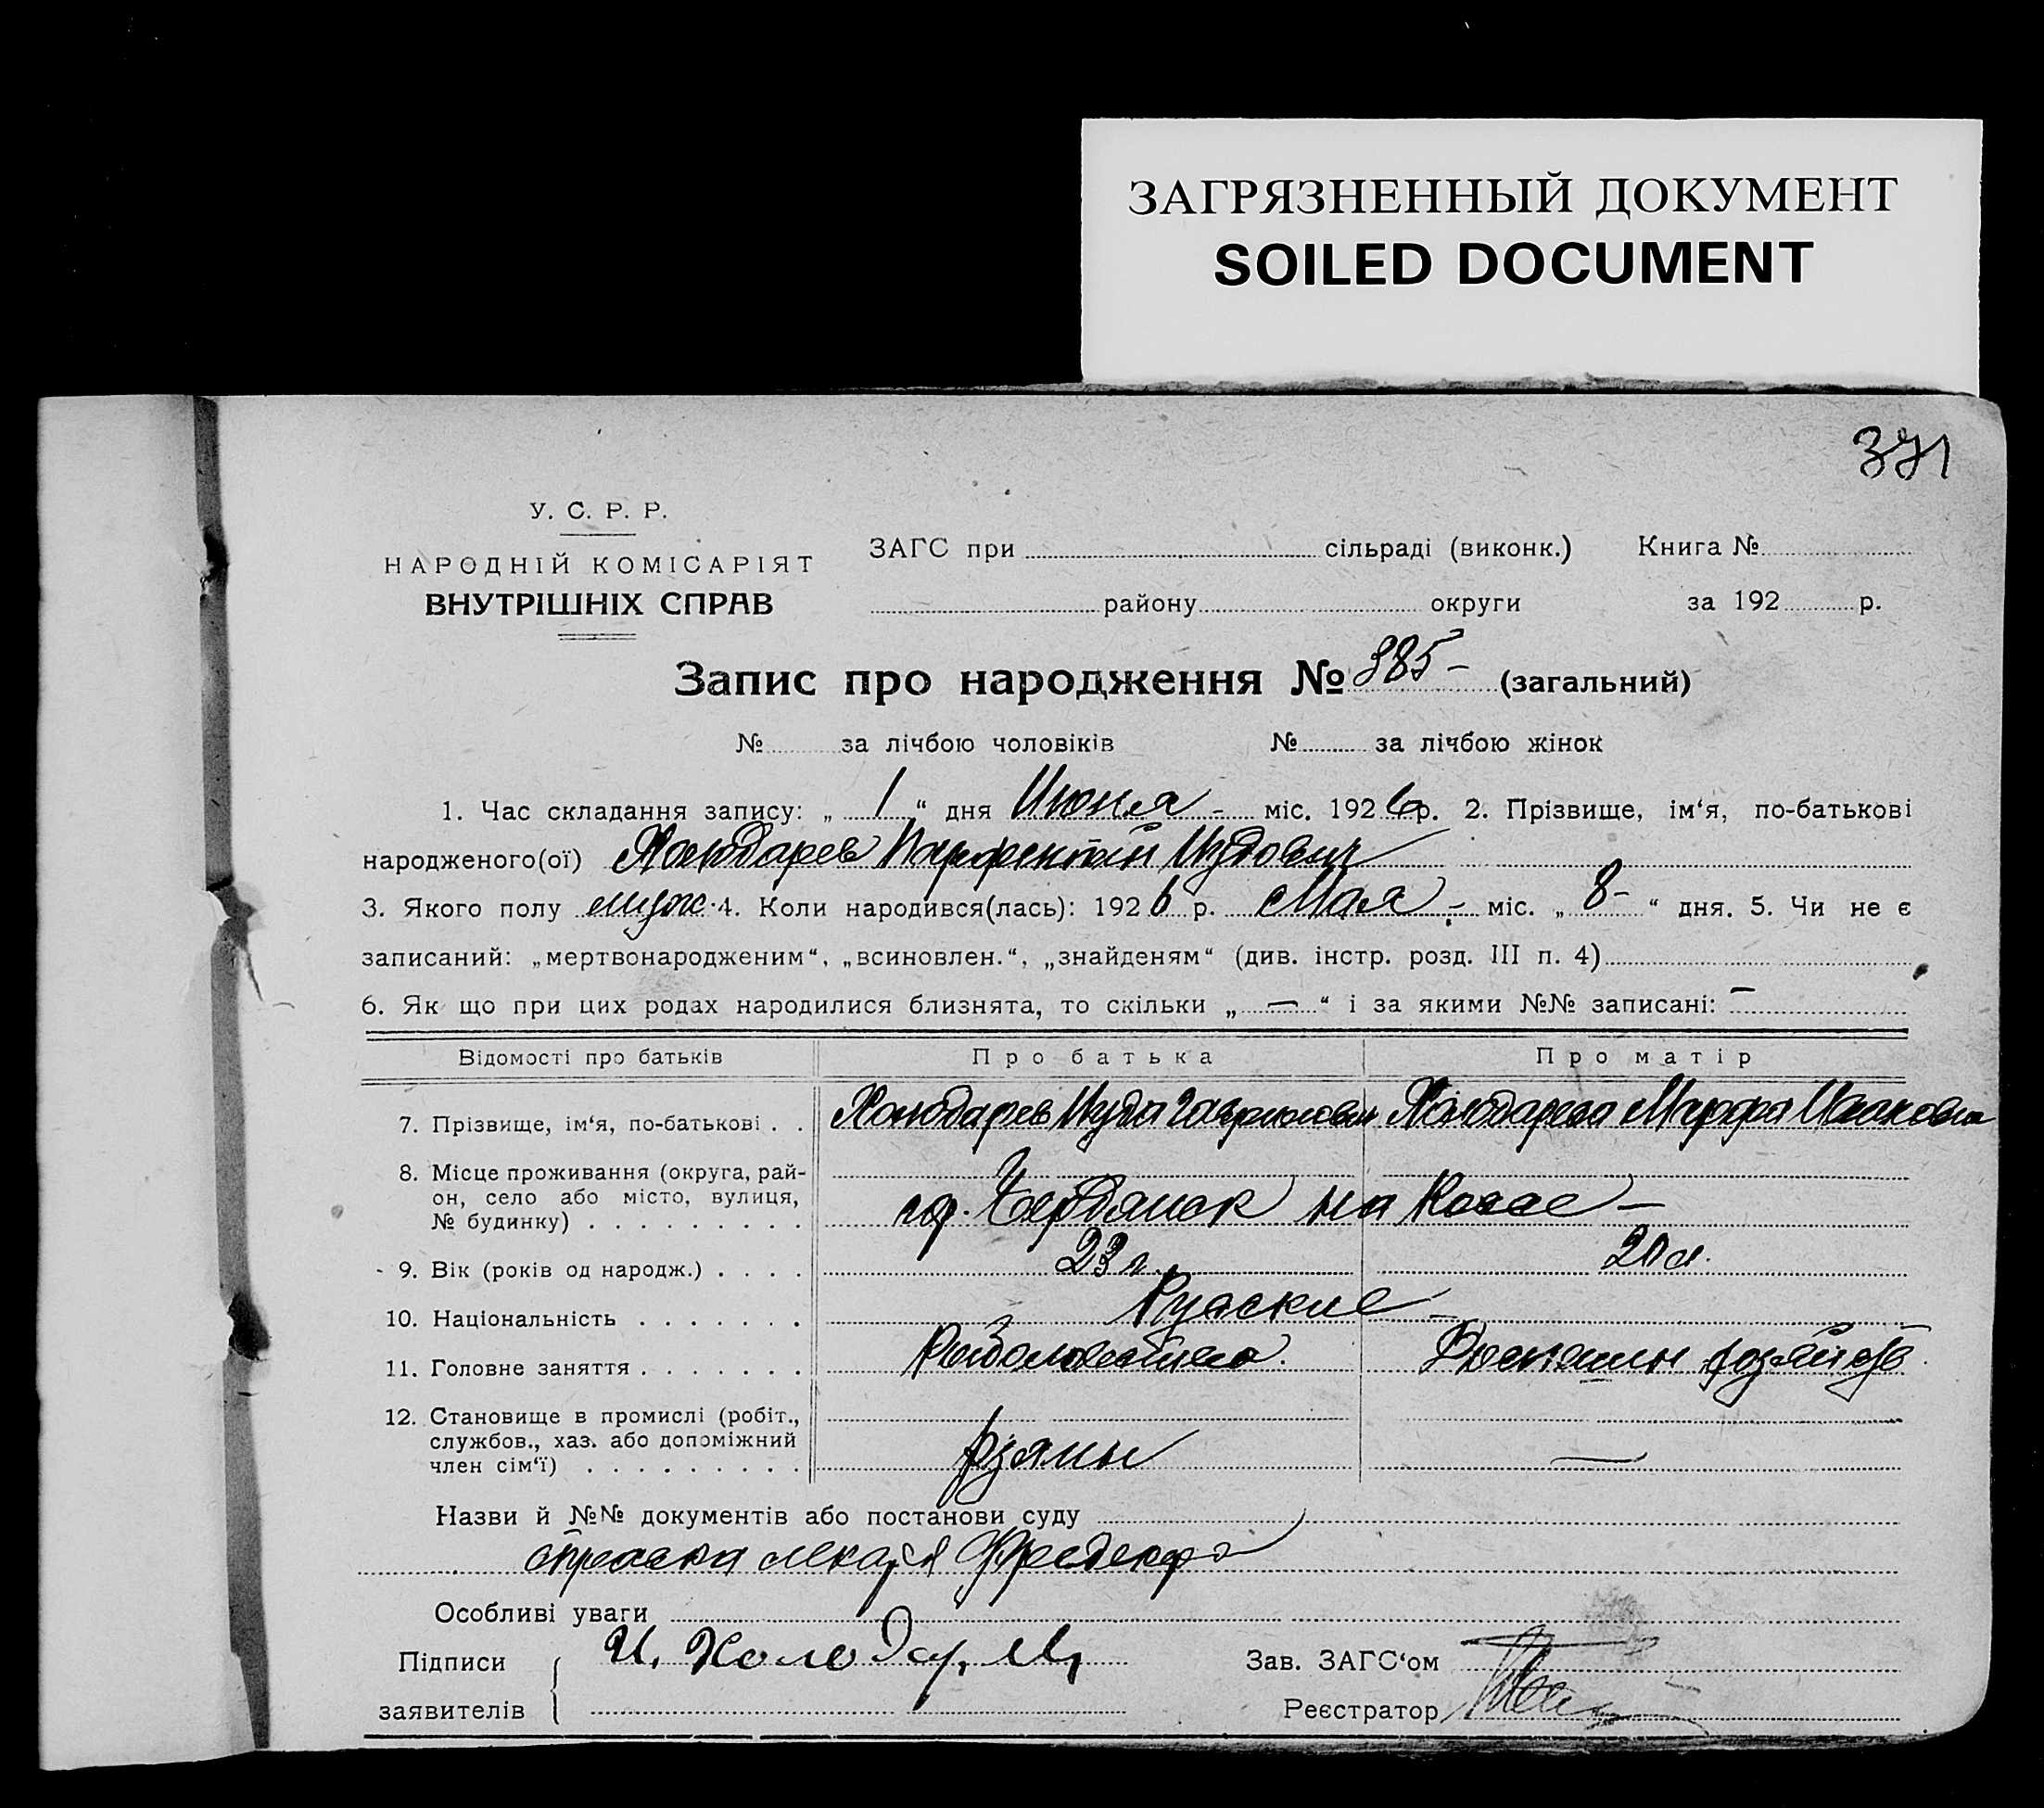 ЗАГРЯЗНЕННЫЙ ДОКУМЕНТ
SOILED DOCUMENT
371
У. С. Р. Р.
НАРОДНІЙ КОМІСАРІЯТ
ВНУТРІШНІХ СПРАВ
ЗАГС при сільраді (виконк.) Книга №
району округи за 192 р.
Запис про народження № 385 - (загальний)
№ за лічбою чоловіків № за лічбою жінок
1. Час складання запису: „ 1 “ дня Июня - міс. 1926 р. 2. Прізвище, ім‘я, по-батькові
народженого(ої)
3. Якого полу муж. 4. Коли народився(лась): 1926 р. Мая - міс. „ 8 - “ дня. 5. Чи не є
записаний: „мертвонародженим“, „всиновлен.“, „знайденям“ (див. інстр. розд. III п. 4)
6. Як що при цих родах народилися близнята, то скільки „ — “ і за якими №№ записані: —
Відомості про батьків Про батька Про матір
7. Прізвище, ім‘я, по-батькові . . Иуда Марфа
8. Місце проживання (округа, рай-
он, село або місто, вулиця,
№ будинку) . . . . . . . . . гор. Бердянск на Косе —
9. Вік (років од народж.) . . . . 23 г.
10. Національність . . . . . . . Руские —
11. Головне заняття . . . . . . .
12. Становище в промислі (робіт.,
службов., хаз. або допоміжний
член сім‘ї) . . . . . . . . . —
Назви й №№ документів або постанови суду
справка лекаря
Особливі уваги
Підписи И. Зав. ЗАГС‘ом
заявителів Реєстратор